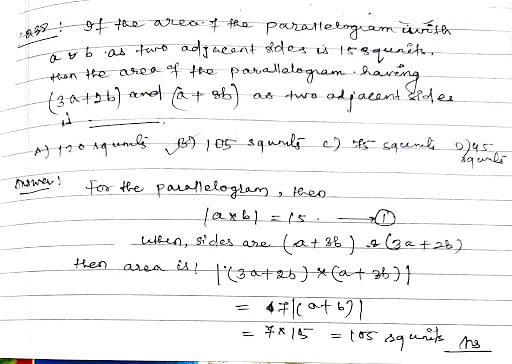 Q38: If the area of the parallelogram with
a & b as two adjacent sides is 15 squnits.
then the area of the parallalogram having
(3a+2b) and (a+3b) as two adjacent sides
is ______.
A) 120 squnits B) 105 squnits c) 75 squnits D) 45
squnits
Answer: For the parallelogram, then
|a×b| = 15. ⟶ ①
when, sides are (a+3b) & (3a+2b)
then area is! |(3a+2b) × (a+3b)|
= 7|(a+b)|
= 7×15 = 105 sq units Ans